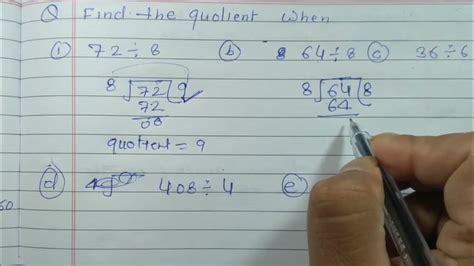 Q Find the quotient when
① 72÷8 ⓑ 64÷8 ⓒ 36÷6
8 √72 9 8 √64 8
72 64
00
quotient = 9
ⓓ 408÷4 ⓔ
50